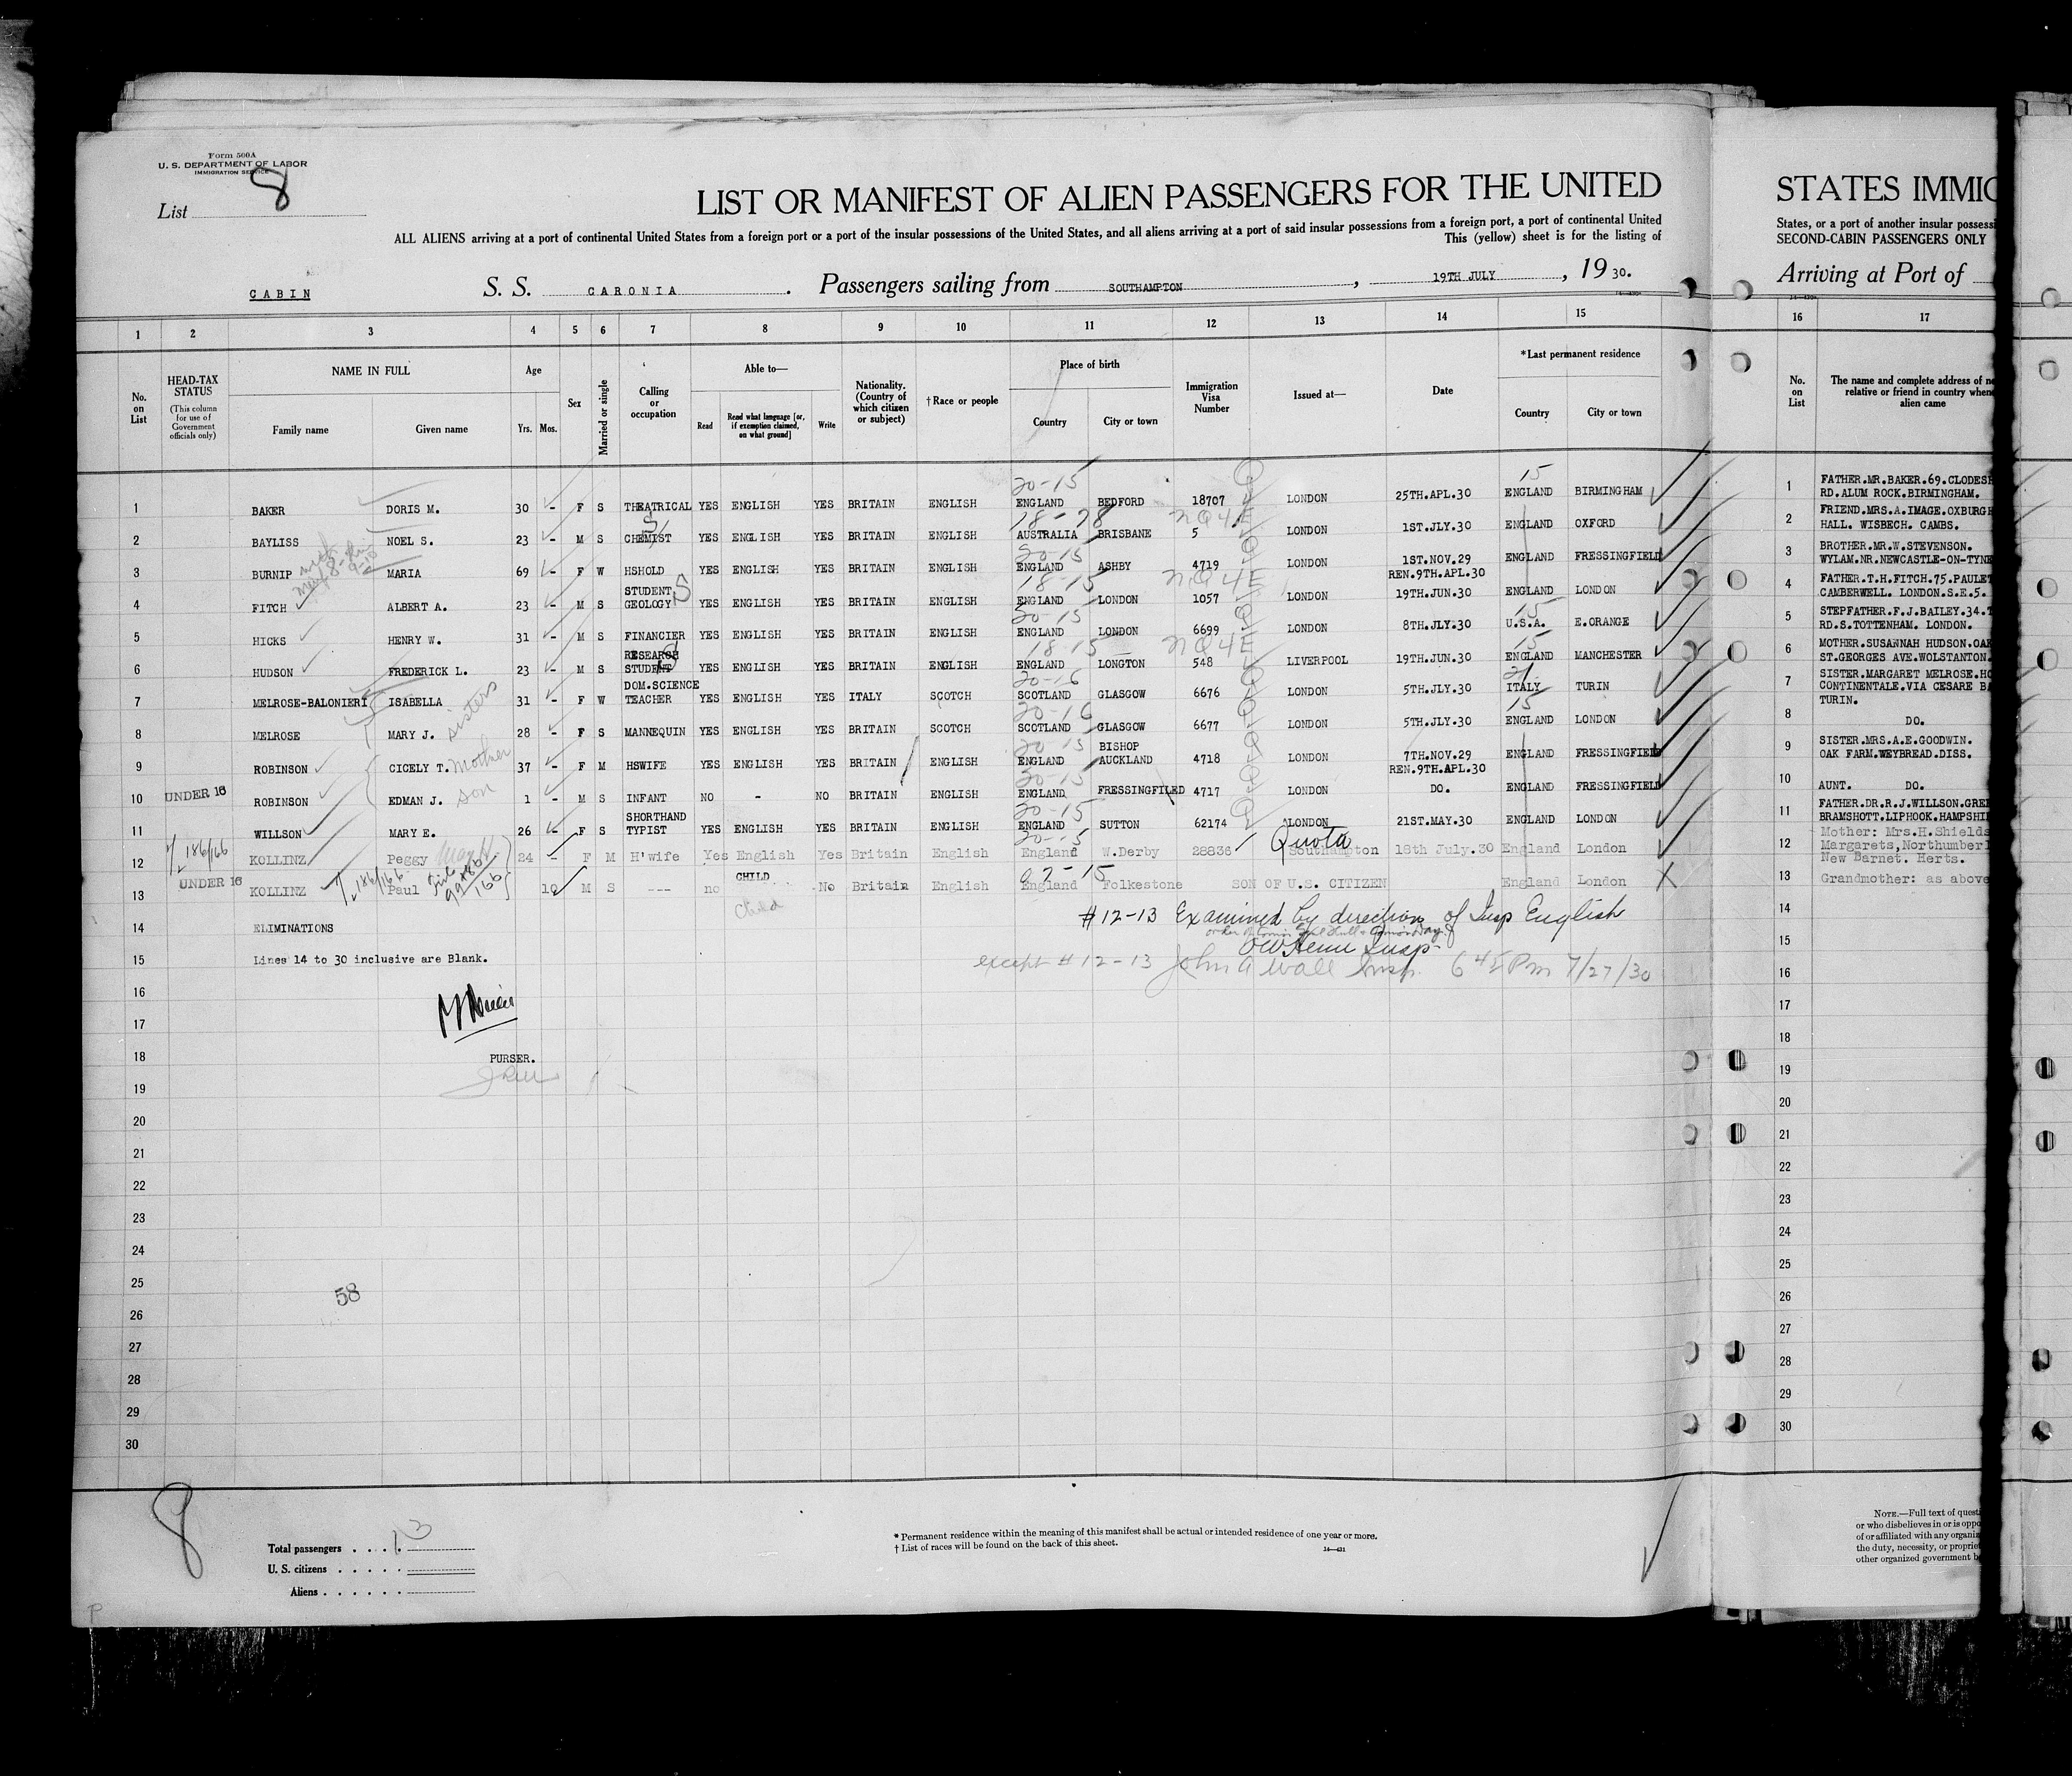 Form 500A
U. S. DEPARTMENT OF LABOR
IMMIGRATION SERVICE
List 8
LIST OR MANIFEST OF ALIEN PASSENGERS FOR THE UNITED
ALL ALIENS arriving at a port of continental United States from a foreign port or a port of the insular possessions of the United States, and all aliens arriving at a port of said insular possessions from a foreign port, a port of continental United
This (yellow) sheet is for the listing of
CABIN S. S. CARONIA. Passengers sailing from SOUTHAMPTON, 19TH JULY, 19 30.
STATES IMMIG
States, or a port of another insular possessi
SECOND-CABIN PASSENGERS ONLY
Arriving at Port of
1 2 3 4 5 6 7 8 9 10 11 12 13 14 15 16 17
No. on List
HEAD-TAX STATUS
(This column for use of Government officials only)
NAME IN FULL
Family name Given name
Age
Yrs. Mos.
Sex
Married or single
Calling or occupation
Able to—
Read Read what language [or, if exemption claimed, on what ground] Write
Nationality. (Country of which citizen or subject)
†Race or people
Place of birth
Country City or town
Immigration Visa Number
Issued at—
Date
*Last permanent residence
Country City or town
No. on List
The name and complete address of ne
relative or friend in country when
alien came
20-15 15
1 BAKER DORIS M. 30 - F S THEATRICAL YES ENGLISH YES BRITAIN ENGLISH ENGLAND BEDFORD 18707 LONDON 25TH.APL.30 ENGLAND BIRMINGHAM
18-78 NQ4E
2 BAYLISS NOEL S. 23 - M S CHEMIST YES ENGLISH YES BRITAIN ENGLISH AUSTRALIA BRISBANE 5 LONDON 1ST.JLY.30 ENGLAND OXFORD
20-15
3 BURNIP MARIA 69 - F W HSHOLD YES ENGLISH YES BRITAIN ENGLISH ENGLAND ASHBY 4719 LONDON 1ST.NOV.29 REN.9TH.APL.30 ENGLAND FRESSINGFIELD
18-15 NQ4E
4 FITCH ALBERT A. 23 - M S STUDENT GEOLOGY S YES ENGLISH YES BRITAIN ENGLISH ENGLAND LONDON 1057 LONDON 19TH.JUN.30 ENGLAND LONDON
20-15 15
5 HICKS HENRY W. 31 - M S FINANCIER YES ENGLISH YES BRITAIN ENGLISH ENGLAND LONDON 6699 LONDON 8TH.JLY.30 U.S.A. E.ORANGE
18-15 NQ4E 15
6 HUDSON FREDERICK L. 23 - M S RESEARCH STUDENT S YES ENGLISH YES BRITAIN ENGLISH ENGLAND LONGTON 548 LIVERPOOL 19TH.JUN.30 ENGLAND MANCHESTER
20-16 21
7 MELROSE-BALONIERI ISABELLA 31 - F W DOM.SCIENCE TEACHER YES ENGLISH YES ITALY SCOTCH SCOTLAND GLASGOW 6676 LONDON 5TH.JLY.30 ITALY TURIN
sisters 20-16 15
8 MELROSE MARY J. 28 - F S MANNEQUIN YES ENGLISH YES BRITAIN SCOTCH SCOTLAND GLASGOW 6677 LONDON 5TH.JLY.30 ENGLAND LONDON
20-15
9 ROBINSON CICELY T. mother 37 - F M HSWIFE YES ENGLISH YES BRITAIN ENGLISH ENGLAND BISHOP AUCKLAND 4718 LONDON 7TH.NOV.29 REN.9TH.APL.30 ENGLAND FRESSINGFIELD
20-15
10 UNDER 16 ROBINSON EDMAN J. son 1 - M S INFANT NO - NO BRITAIN ENGLISH ENGLAND FRESSINGFILED 4717 LONDON DO. ENGLAND FRESSINGFIELD
20-15
11 WILLSON MARY E. 26 - F S SHORTHAND TYPIST YES ENGLISH YES BRITAIN ENGLISH ENGLAND SUTTON 62174 LONDON 21ST.MAY.30 ENGLAND LONDON
Quota
12 186/166 KOLLINZ Peggy 24 - F M H'wife Yes English Yes Britain English England W.Derby 28836 Southampton 18th July.30 England London
13 UNDER 16 KOLLINZ 186/166 Paul 10 M S --- no CHILD No Britain English England Folkestone SON OF U.S. CITIZEN England London X
Child
#12-13 Examined by direction of Insp English
14 ELIMINATIONS
15 Lines 14 to 30 inclusive are Blank.
except #12-13 John A Wall Insp. 6 45 Pm 7/27/30
16
17
18 PURSER.
19
20
21
22
23
24
25
58
26
27
28
29
30
1 FATHER.MR.BAKER.69.CLODESH
RD.ALUM ROCK.BIRMINGHAM.
2 FRIEND.MRS.A.IMAGE.OXBURGH
HALL. WISBECH. CAMBS.
3 BROTHER.MR.W.STEVENSON.
WYLAM.NR.NEWCASTLE-ON-TYNE
4 FATHER.T.H.FITCH.75.PAULET
CAMBERWELL. LONDON.S.E.5.
5 STEPFATHER.F.J.BAILEY.34.
RD.S.TOTTENHAM. LONDON.
6 MOTHER.SUSANNAH HUDSON.OAK
ST.GEORGES AVE.WOLSTANTON.
7 SISTER.MARGARET MELROSE.HO
CONTINENTALE.VIA CESARE BA
TURIN.
8 DO.
9 SISTER.MRS.A.E.GOODWIN.
OAK FARM.WEYBREAD.DISS.
10 AUNT. DO.
11 FATHER.DR.R.J.WILLSON.GREE
BRAMSHOTT.LIPHOOK.HAMPSHI
12 Mother: Mrs.H.Shields
Margarets,Northumberl
New Barnet. Herts.
13 Grandmother: as above
14
15
16
17
18
19
20
21
22
23
24
25
26
27
28
29
30
8
Total passengers . . . . 13
U. S. citizens . . . . .
Aliens . . . . . .
* Permanent residence within the meaning of this manifest shall be actual or intended residence of one year or more.
† List of races will be found on the back of this sheet.
14—431
NOTE.—Full text of quest
or who disbelieves in or is oppo
of or affiliated with any organiz
the duty, necessity, or propriet
other organized government b
P